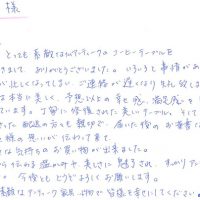 様
とても素敵なアンティークのコーヒーテーブルを
きまして、ありがとうございました。いろいろと事情があ
が忙しくなってしまい ご連絡が遅くなり 失礼致しま
は本当に美しく、予想以上の幸せ感、満足感を
ています。丁寧に修復された美しいテーブル、そして
された配送の方も親切で、届いた後のお葉書
様の思いが伝わって来て、
な気持ちのお買い物が出来ました。
から伝わる温かみや美しさに魅了され、すっかり
。今後ともどうぞよろしくお願いします。
素敵なアンティーク家具、小物で皆様を幸せにしてください。